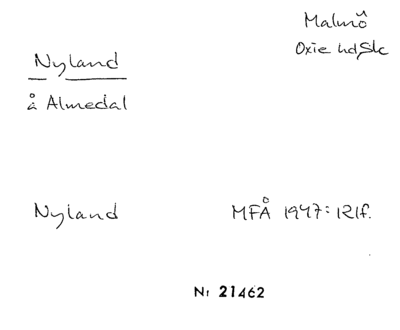 Malmö
Oxie hd Sk
Nyland
å Almedal
Nyland MFÅ 1947: 121f.
Nr 21462